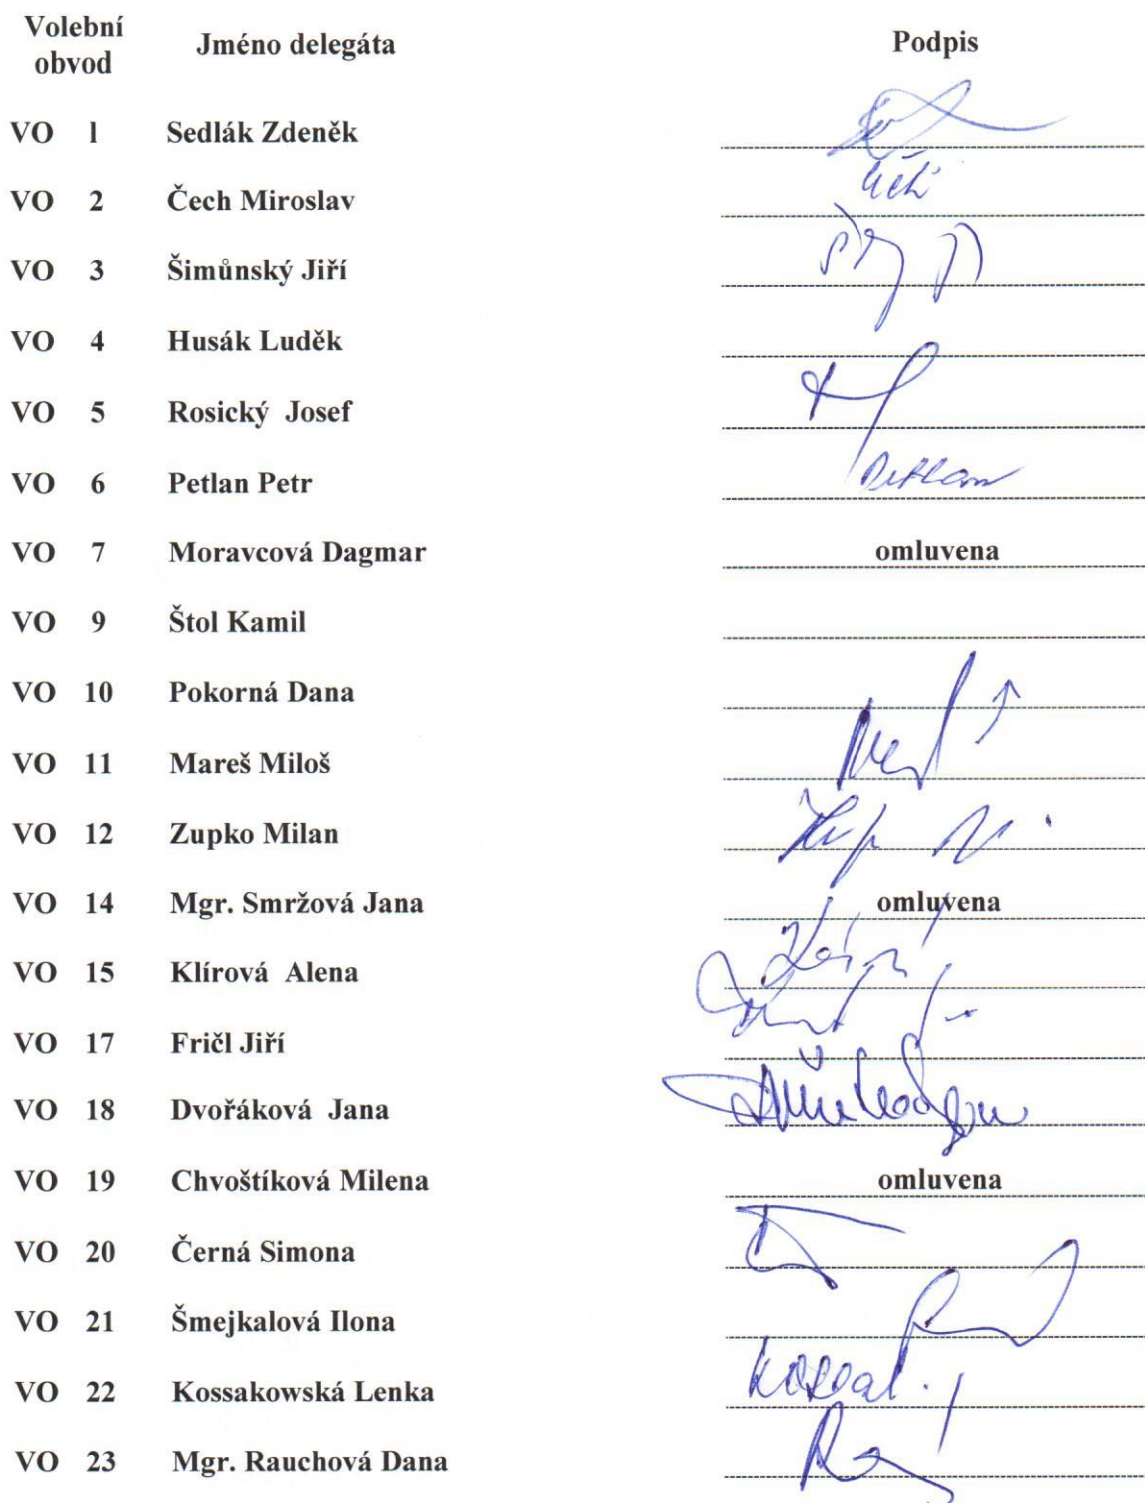 Volební obvod Jméno delegáta Podpis
VO 1 Sedlák Zdeněk
VO 2 Čech Miroslav
VO 3 Šimůnský Jiří
VO 4 Husák Luděk
VO 5 Rosický Josef
VO 6 Petlan Petr Petlan
VO 7 Moravcová Dagmar omluvena
VO 9 Štol Kamil
VO 10 Pokorná Dana
VO 11 Mareš Miloš
VO 12 Zupko Milan
VO 14 Mgr. Smržová Jana omluvena
VO 15 Klírová Alena
VO 17 Fričl Jiří
VO 18 Dvořáková Jana
VO 19 Chvoštíková Milena omluvena
VO 20 Černá Simona
VO 21 Šmejkalová Ilona
VO 22 Kossakowská Lenka
VO 23 Mgr. Rauchová Dana